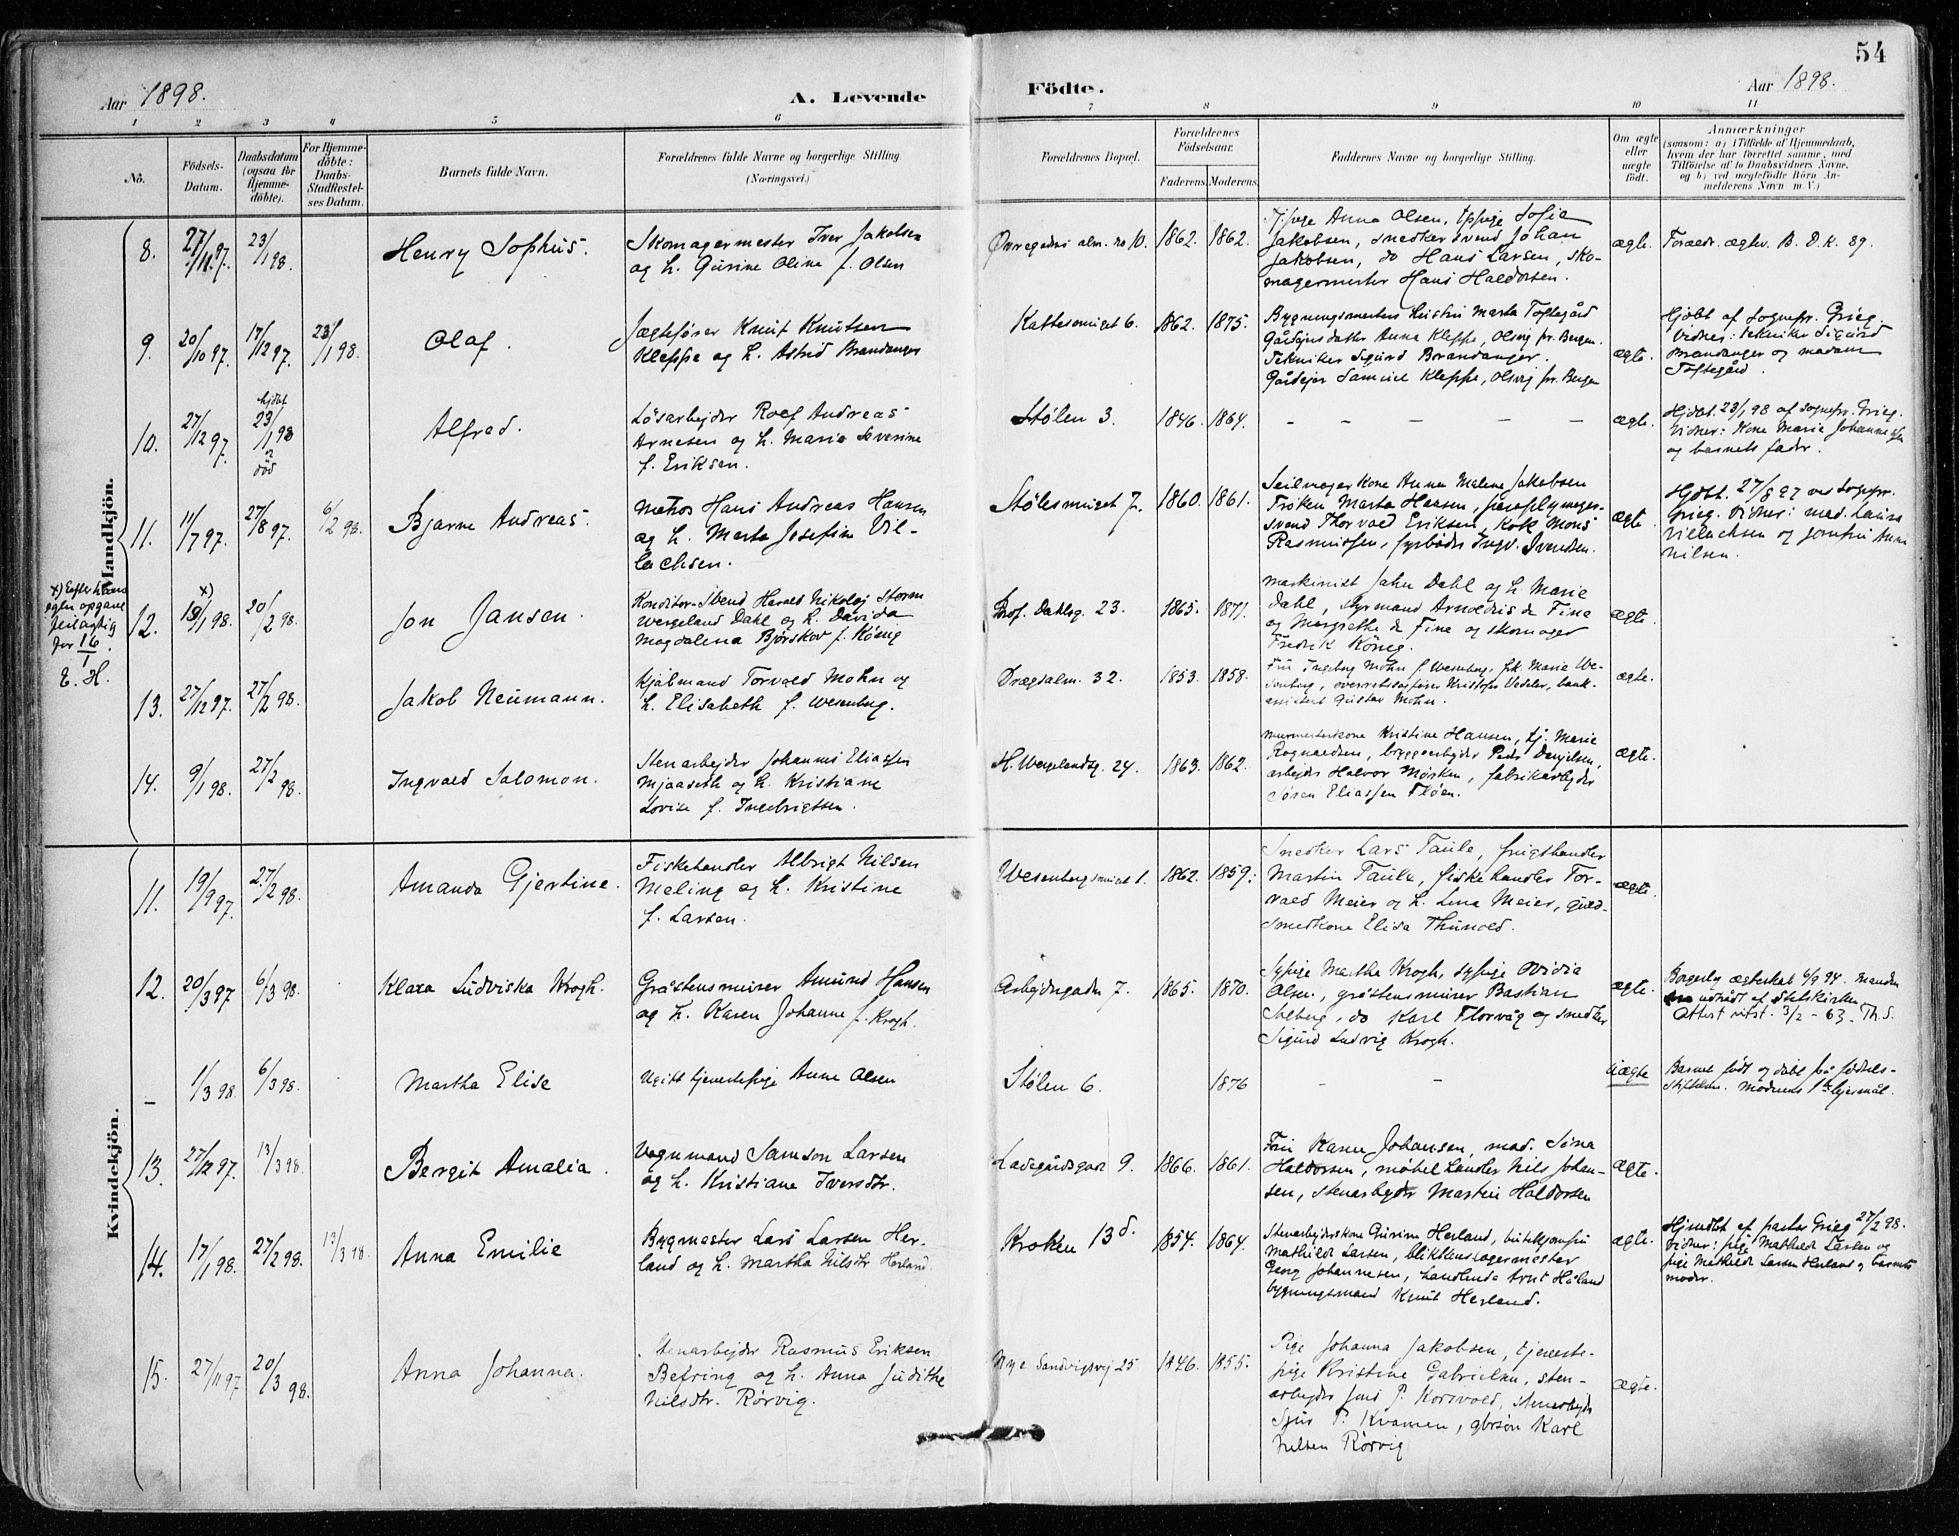 54
Aar 1898.
A. Levende
Födte.
Aar 1898.
1 2 3 4 5 6 7 8 9 10 11
No.
Födsels-
Datum.
Daabsdatum
(ogsaa for
Hjemme-
döbte).
For Hjemme-
döbte:
Daabs-
Stadfæstel-
ses Datum.
Barnets fulde Navn.
Forældrenes fulde Navne og borgerlige Stilling.
(Næringsvei.)
Forældrenes Bopæl.
Forældrenes
Födselsaar.
Faderens. Moderens.
Faddernes Navne og borgerlige Stilling.
Om ægte
eller
uægte
födt.
Anmærkninger
(saasom: a) i Tilfælde af Hjemmedaab,
hvem der har forrettet samme, med
Tilföielse af to Daabsvidners Navne,
og b) ved uægtefödte Börn An-
melderens Navn m. V.)
Mandkjön.
8. 27/11.97. 23/1 98. Henry Sophus.
Skomagermester Iver Jakobsen
og h. Gurine Oline f. Olsen
Øvregadens alm. no 10. 1862. 1862.
Anna Olsen, Sofie
Jakobsen, snedkersvend Johan
Jakobsen, do Hans Larsen, sko-
magermester Hans Haldorsen.
ægte.
Foræld. ægtev. B. D. k. 89.
9. 20/10 97. 17/12 97. 23/1 98. Olaf.
Jægtefører Knut Knutsen
Kleppe og h. Astrid Brandanger
Kattesmuget 6. 1862. 1875.
Bygningsmesters hustru Marta Toftegård
Gårdejrsdatter Anna Kleppe, Olsvig pr. Bergen.
Tekniker Sigurd Brandanger.
Gårdejer Samuel Kleppe, Olsvig pr. Bergen
ægte.
Hjdbt af sognepr. Grieg.
Vidner: tekniker Sigurd
Brandanger og madam
Toftegård.
10. 27/12 97. hjdbt 23/1 98 død Alfred.
Løsarbejder Rolf Andreas
Arnesen og h. Marie Severine
f. Eriksen.
Stølen 3. 1846. 1864. – – – – –
ægte.
Hjdbt. 23/1 98 af sognepr. Grieg.
Vidner: Kone Marie Johannessen
og barnets fader.
11. 11/7 97. 27/8 97. 6/2 98. Bjarne Andreas.
Matros Hans Andreas Hansen
og h. Marta Josefine Vil-
lachsen.
Stølesmuget 7. 1860. 1861.
Seilmager kone Anna Malene Jakobsen
Frøken Marta Hansen, paraplymager-
svend Thorvald Eriksen, kok Mons
Rasmussen, fyrbøder Ingv. Ivendsen.
ægte.
Hjdbt. 27/8 97 ved sognepr.
Grieg. Vidner: mad. Laura
Villachsen og jomfru Anna
Nilsen.
x) Efter
opgave
feilagtig
for 16/1
E. H.
12. x) 19/1 98. 20/2 98. Jon Jansen.
Konditor-Svend Harald Nikolaj Storm
Wergeland Dahl og h. Davida
Magdalena Bjørskov f. König
Prof. Dahlsg. 23. 1865. 1871.
Maskinist Jahn Dahl og h Marie
Dahl, styrmand Arnoldus de Fine
og Margrethe de Fine og skomager
Fredrik König.
ægte.
13. 27/12 97. 27/2 98. Jakob Neumann.
Kjøbmand Torvald Mohn og
h. Elisabeth f. Wesenberg.
Drægsalm. 32. 1853. 1858.
Fru Ingeborg Mohn f. Wesenberg, frk. Marie We-
senberg, overretssagfører Kristofer Vedeler, bank-
assistent Gustav Mohn.
ægte.
14. 9/1 98. 27/2 98. Ingvald Salomon.
Stenarbejder Johannes Eliassen
Mjaaseth og h. Kristiane
Lovise f. Ingebrigtsen.
H. Wergelandsg. 24. 1863. 1862.
Murmesterkone Kristine Hansen, tj. Marie
Rognaldsen, bryggearbejder Peder Danjelsen,
arbejder Halvor Mørken, fabrikarbejder
Søren Eliassen Fløen.
ægte.
Kvindekjön.
11. 19/9 97. 27/2 98. Amanda Gjertine.
Fiskehandler Albrigt Nilsen
Meling og h. Kristine
f. Larsen.
Wesenbergsmuget 1. 1862. 1859.
Snedker Lars Taule, frugthandler
Martin Taule, fiskehandler Tor-
vald Meier og h. Lina Meier, guld-
smedkone Elisa Thunold.
ægte.
12. 20/3 97 6/3 98. Klara Ludviska Krogh.
Gråstensmurer Amund Hansen
og h. Karen Johanne f. Krogh.
Arbejdergaden 7. 1865. 1870.
Sypige Martha Krogh, sypige Ovidia
Olsen, gråstensmurer Bastian
Solberg, do Karl Florvåg og snedker
Sigurd Ludvig Krogh.
ægte.
Borgerlig ægteskab 6/9 94. Manden
udtrådt af statskirken
Attest utst. 3/2 - 63. Th. S.
– 1/3 98. 6/3 98. Martha Elise
Ugift tjenestepige Anne Olsen
Stølen 6. 1876 – –
uægte
Barnet født og døbt på fødsels-
stiftelsen. Moderens 1ste lejermål.
13. 27/12 97. 13/3 98. Bergit Amalia.
Vognmand Samson Larsen
og h. Kristiane Iversdtr.
Ladegårdsgad. 9. 1866. 1861.
Fru Karen Johansen, mad. Sina
Haldorsen, møbelhandler Nils Johan-
sen, stenarbejder Martin Haldorsen
ægte.
14. 17/1 98. 27/2 98. 13/3 98. Anna Emilie
Bygmester Lars Larsen Her-
land og h. Martha Nilsdtr Herland.
Kroken 13 d. 1854. 1864.
Stenarbejderskone Gurine Herland, butikjomfru
Mathilde Larsen, blikkenslagermester
Georg Johannesen, handlende Arnt Håland
bygningsmand Knut Herland.
ægte.
Hjmdbt af pastor Grieg 27/2 98.
Vidner: pige Mathilde Larsen og
pige Mathilde Larsen Herland og barnets
moder.
15. 27/11 97 20/3 98. Anna Johanna.
Stenarbejder Rasmus Eriksen
Befring og h. Anna Judithe
Nilsdtr. Rørvig.
Nye Sandvigsvej 25 1846. 1855.
Pige Johanna Jakobsen, tjeneste-
pige Kristine Gabrielsen, sten-
arbejder Jens P. Korsvold, stenarbejder
Sjur P. Kvamen, gbrsøn Karl
Nilsen Rørvig
ægte.